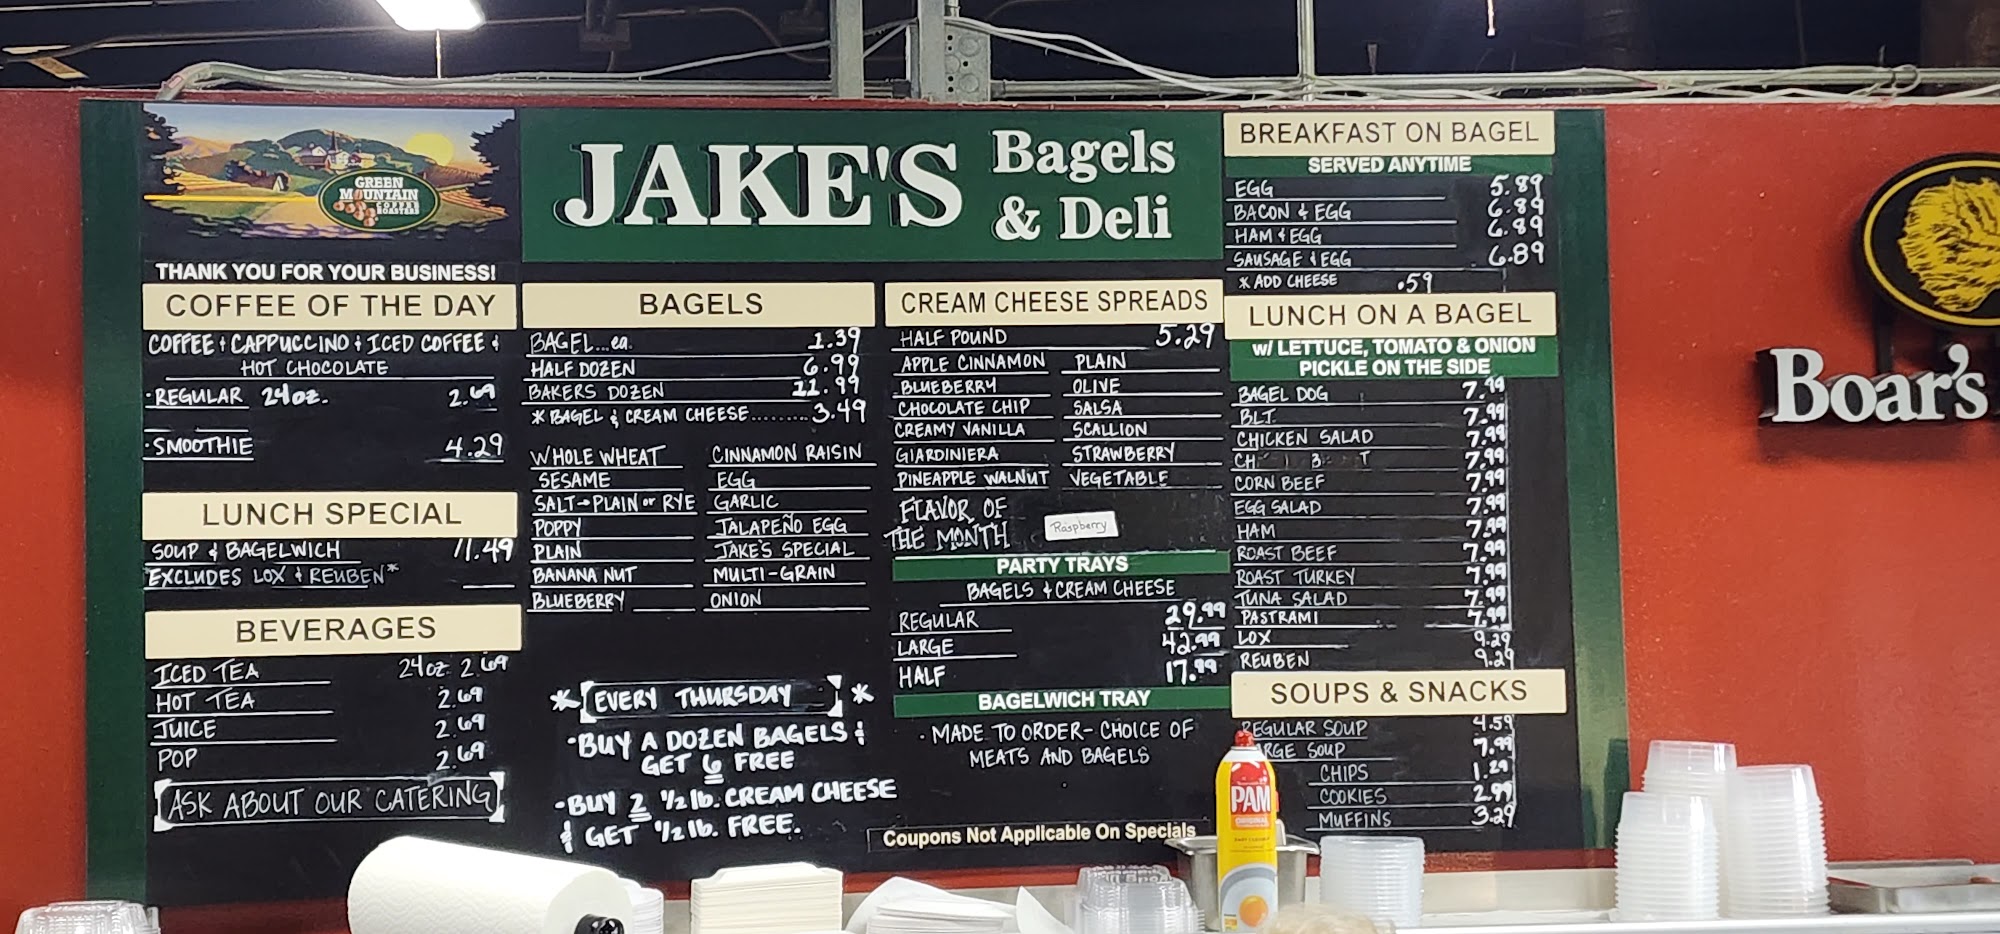 GREEN
MOUNTAIN
COFFEE
ROASTERS
THANK YOU FOR YOUR BUSINESS!
COFFEE OF THE DAY
COFFEE & CAPPUCCINO & ICED COFFEE &
HOT CHOCOLATE
·REGULAR 24oz. 2.69
·SMOOTHIE 4.29
LUNCH SPECIAL
SOUP & BAGELWICH 11.49
*EXCLUDES LOX & REUBEN*
BEVERAGES
ICED TEA 24oz 2.69
HOT TEA 2.69
JUICE 2.69
POP 2.69
ASK ABOUT OUR CATERING
JAKE'S Bagels
& Deli
BAGELS
BAGEL...ea. 1.39
HALF DOZEN 6.99
BAKERS DOZEN 11.99
* BAGEL & CREAM CHEESE......... 3.49
WHOLE WHEAT CINNAMON RAISIN
SESAME EGG
SALT→PLAIN or RYE GARLIC
POPPY JALAPEÑO EGG
PLAIN JAKE'S SPECIAL
BANANA NUT MULTI-GRAIN
BLUEBERRY ONION
* [EVERY THURSDAY] *
·BUY A DOZEN BAGELS &
GET 6 FREE
-BUY 2 1/2 lb. CREAM CHEESE
& GET 1/2 lb. FREE.
CREAM CHEESE SPREADS
HALF POUND 5.29
APPLE CINNAMON PLAIN
BLUEBERRY OLIVE
CHOCOLATE CHIP SALSA
CREAMY VANILLA SCALLION
GIARDINIERA STRAWBERRY
PINEAPPLE WALNUT VEGETABLE
FLAVOR OF
THE MONTH Raspberry
PARTY TRAYS
BAGELS & CREAM CHEESE
REGULAR 29.99
LARGE 42.99
HALF 17.99
BAGELWICH TRAY
· MADE TO ORDER- CHOICE OF
MEATS AND BAGELS
Coupons Not Applicable On Specials
BREAKFAST ON BAGEL
SERVED ANYTIME
EGG 5.89
BACON & EGG 6.89
HAM & EGG 6.89
SAUSAGE & EGG 6.89
* ADD CHEESE .59
LUNCH ON A BAGEL
w/ LETTUCE, TOMATO & ONION
PICKLE ON THE SIDE
BAGEL DOG 7.99
BLT. 7.99
CHICKEN SALAD 7.99
7.99
CORN BEEF 7.99
EGG SALAD 7.99
HAM 7.99
ROAST BEEF 7.99
ROAST TURKEY 7.99
TUNA SALAD 7.99
PASTRAMI 7.99
LOX 9.29
REUBEN 9.29
SOUPS & SNACKS
REGULAR SOUP 4.59
SOUP 7.99
CHIPS 1.29
COOKIES 2.99
MUFFINS 3.29
PAM
ORIGINAL
Boar's